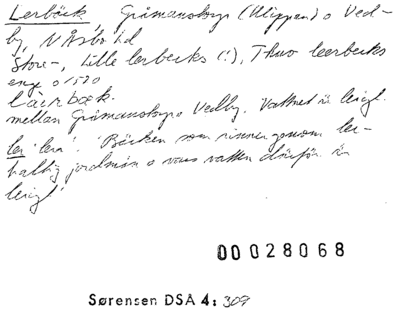 Lerbäck, Gråmanstorp (Klippan) o Ved-
by, N Åsbo hd
Store-, Lille lerbecks (!), Thuo leerbecks
eng o 1570
lairbæk.
mellan Gråmanstorp o Vedby. Vattnet är lerigt.
ler 'lera'. 'Bäcken som rinner genom ler-
haltig jordmån o vars vatten därför är
lerigt'
00028068
Sørensen DSA 4: 309